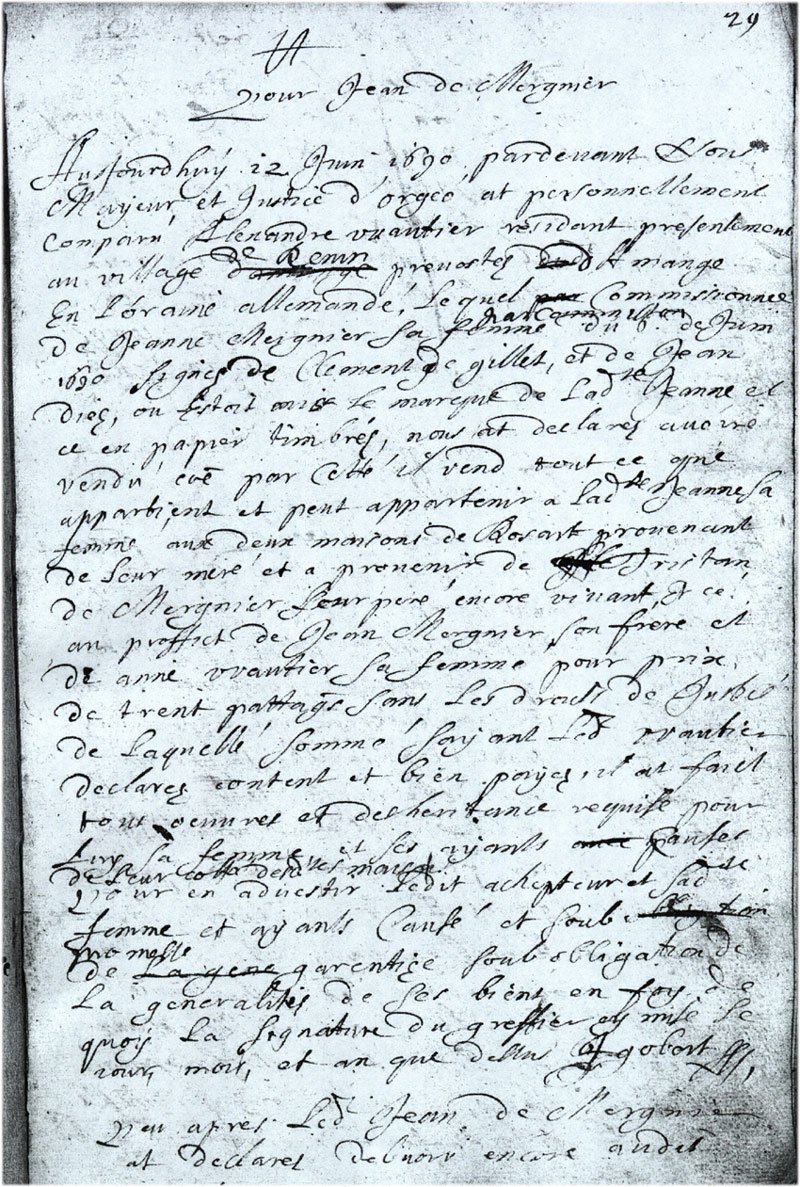 29
pour Jean de Mergnier
Aujourdhuy 12 Juin 1690 pardevant Nous
Mayeur et Justice d'orgeo at personnellement
comparu Alexandre vrautier residant presentement
au village de Renin prevostez d St mange
En Loraine allemande, Lequel Commissionnee
par Commission
de Jeanne Mergnier sa femme du 6. de Juin
1690 signes de Clement de gillet, et de Jean
diez, ou Estoit mise le marque de Lad te Jeanne et
ce en papier timbrez, nous at declarez avoire
vendu come par Cette il vend tout ce que
appartient et peut appartenir a Lad te Jeanne sa
femme aux deux maisons de Rosart provenant
de Leur mere et a provenir de Tristan
de Mergnier Leur pere encore vivant, & ce
au proffict de Jean Mergnier son frere et
de anne vrautier sa femme pour prix
de trent pattags sans Les droits de
de Laquelle somme sayant Led vrautier
declarez content et bien payez, il at faict
tout oeuvres et desheritance requise pour
Luy sa femme et ses ayants causes
de Leur cotta desd tes maisons
pour en advestir Ledit achepteur et sad te
femme et ayants Causé et soub
promesse
de garentise soub obligation de
La generalites de ses bient, en foy de
quoy La signature du greffier est mise Le
jour, mois, et an que dessu gobert
peu apres Led Jean de Mergnie
at declarez debvoir encore audit